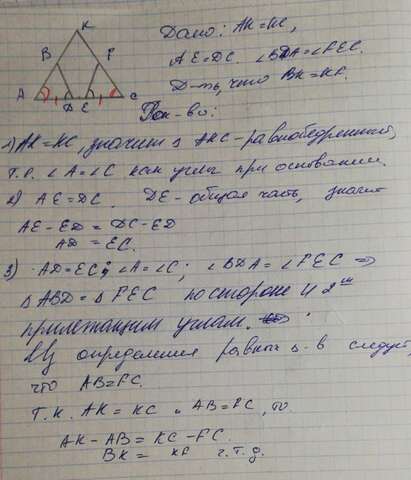 K
B P
A D E C
Дано: AK=KC,
AE=DC. ∠BDA=∠PEC.
Д-ть, что BK=KP.
Док-во:
1) AK=KC, значит Δ AKC - равнобедренный,
т.е. ∠A=∠C как углы при основании.
2) AE=DC. DE - общая часть, значит
AE-ED=DC-ED
AD=EC.
3) AD=EC; ∠A=∠C; ∠BDA=∠PEC ⇒
Δ ABD=Δ PEC по стороне и 2ум
прилежащим углам.
Из определения равных Δ-в следует,
что AB=PC.
Т.к. AK=KC и AB=PC, то
AK-AB=KC-PC.
BK= KP ч.т.д.